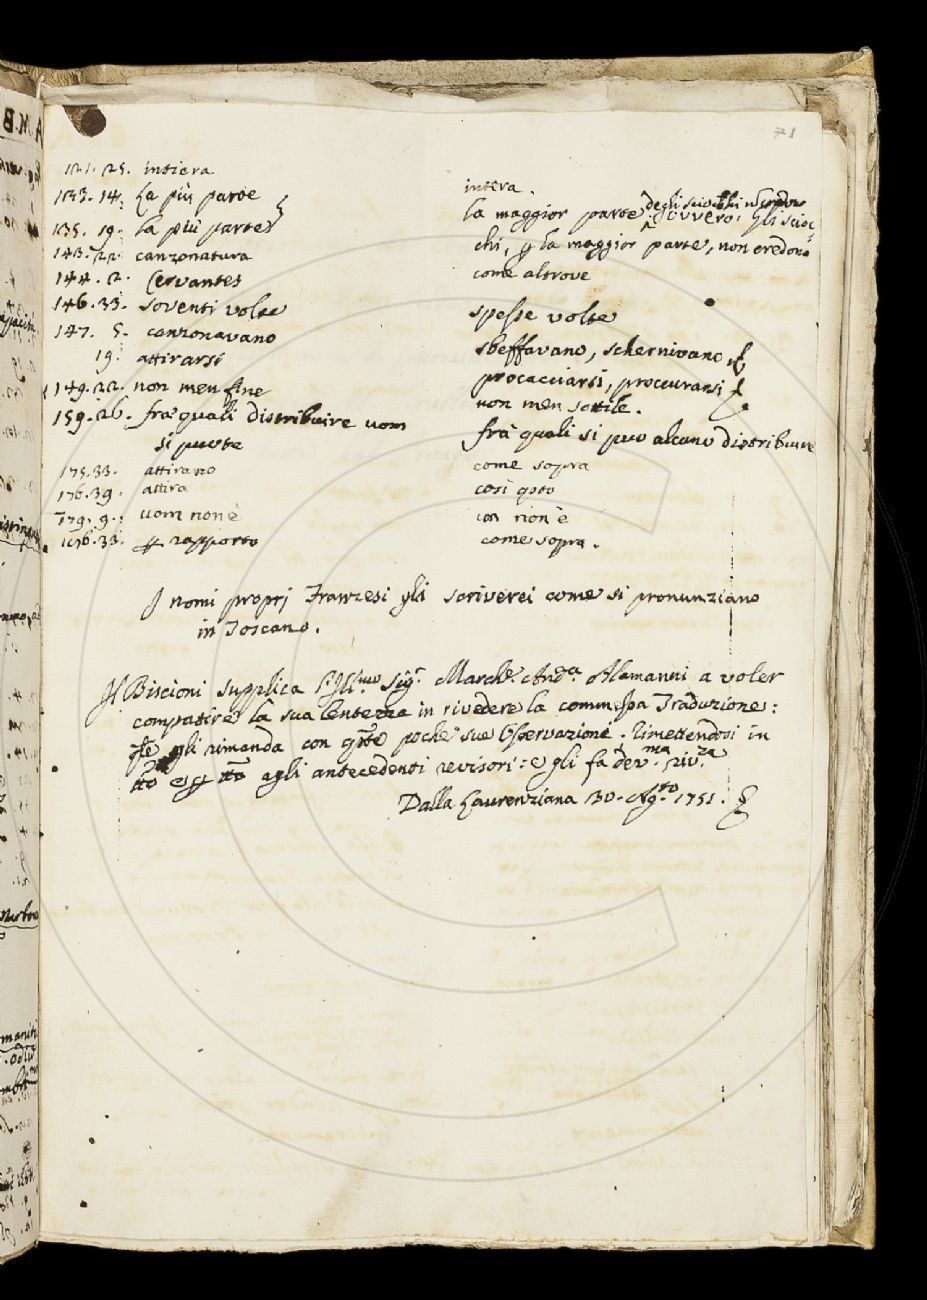 71
121. 25. intiera intera.
133. 14. La più parte la maggior parte degli sciocchi non credono
135. 19. la più parte ovvero: gli scioc-
chi, p la maggior parte, non credono
143. 22. canzonatura
144. 2. Cervantes come altrove
146. 33. soventi volte spesse volte
147. 5. canzonavano sbeffavano, schernivano
19. attirarsi procacciarsi, proccurarsi
149. 22. non men fine non men sottile.
159. 26. frà quali distribuire uom frà quali si può alcuno distribuire
si puote
175. 33. attirano come sopra
176. 39. attira così qsto
179. 9. uom non è un non è
186. 33. p rapporto come sopra.
I nomi proprj Franzesi gli scriverei come si pronunziano
in Toscano.
Il Biscioni supplica l'Illmo Sigr March. Andª Alamanni a voler
compatire la sua lentezza in rivedere la commessa Traduzione:
gli rimanda con qste poche sue Osservazioni. Rimettendosi in
tto e p tto agli antecedenti revisori: e gli fà dev.ma riv.za
Dalla Laurenziana 30. Ag.sto 1751.